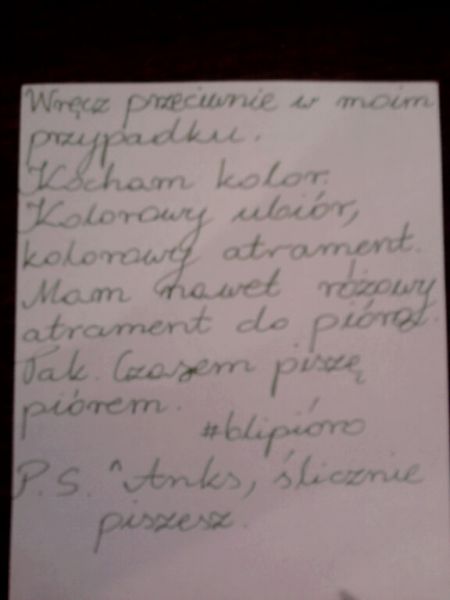 Wręcz przeciwnie w moim
przypadku.
Kocham kolor.
Kolorowy ubiór,
kolorowy atrament.
Mam nawet różowy
atrament do pióra.
Tak. Czasem piszę
piórem.
#blipióro
P.S. ^Anks, ślicznie
piszesz.